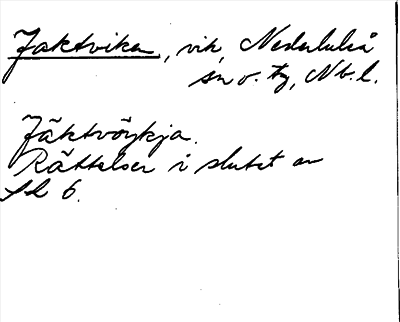 Jaktviken, vik, Nederluleå
sn o. tg, Nb. l.
Jäktvöykja.
Rättelser i slutet av
fl 6.